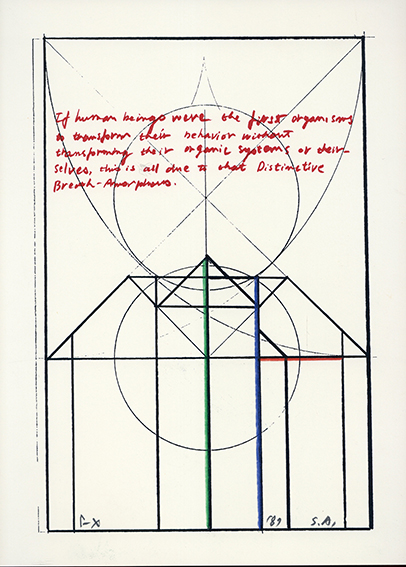 If human beings were the first organisms
to transform their behavior without
transforming their organic systems or their-
selves, this is all due to that Distinctive
Breath-Amorphous.
'89 S.A.